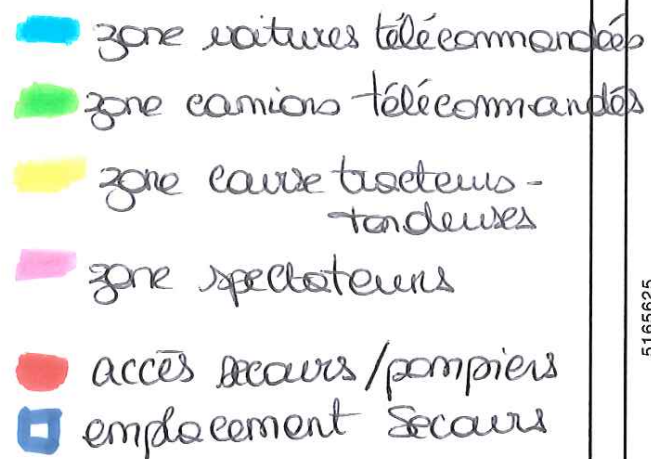 zone voitures télécommandées
zone camions télécommandés
zone course tracteurs-
tondeuses
zone spectateurs
accès secours/pompiers
emplacement Secours
5165625